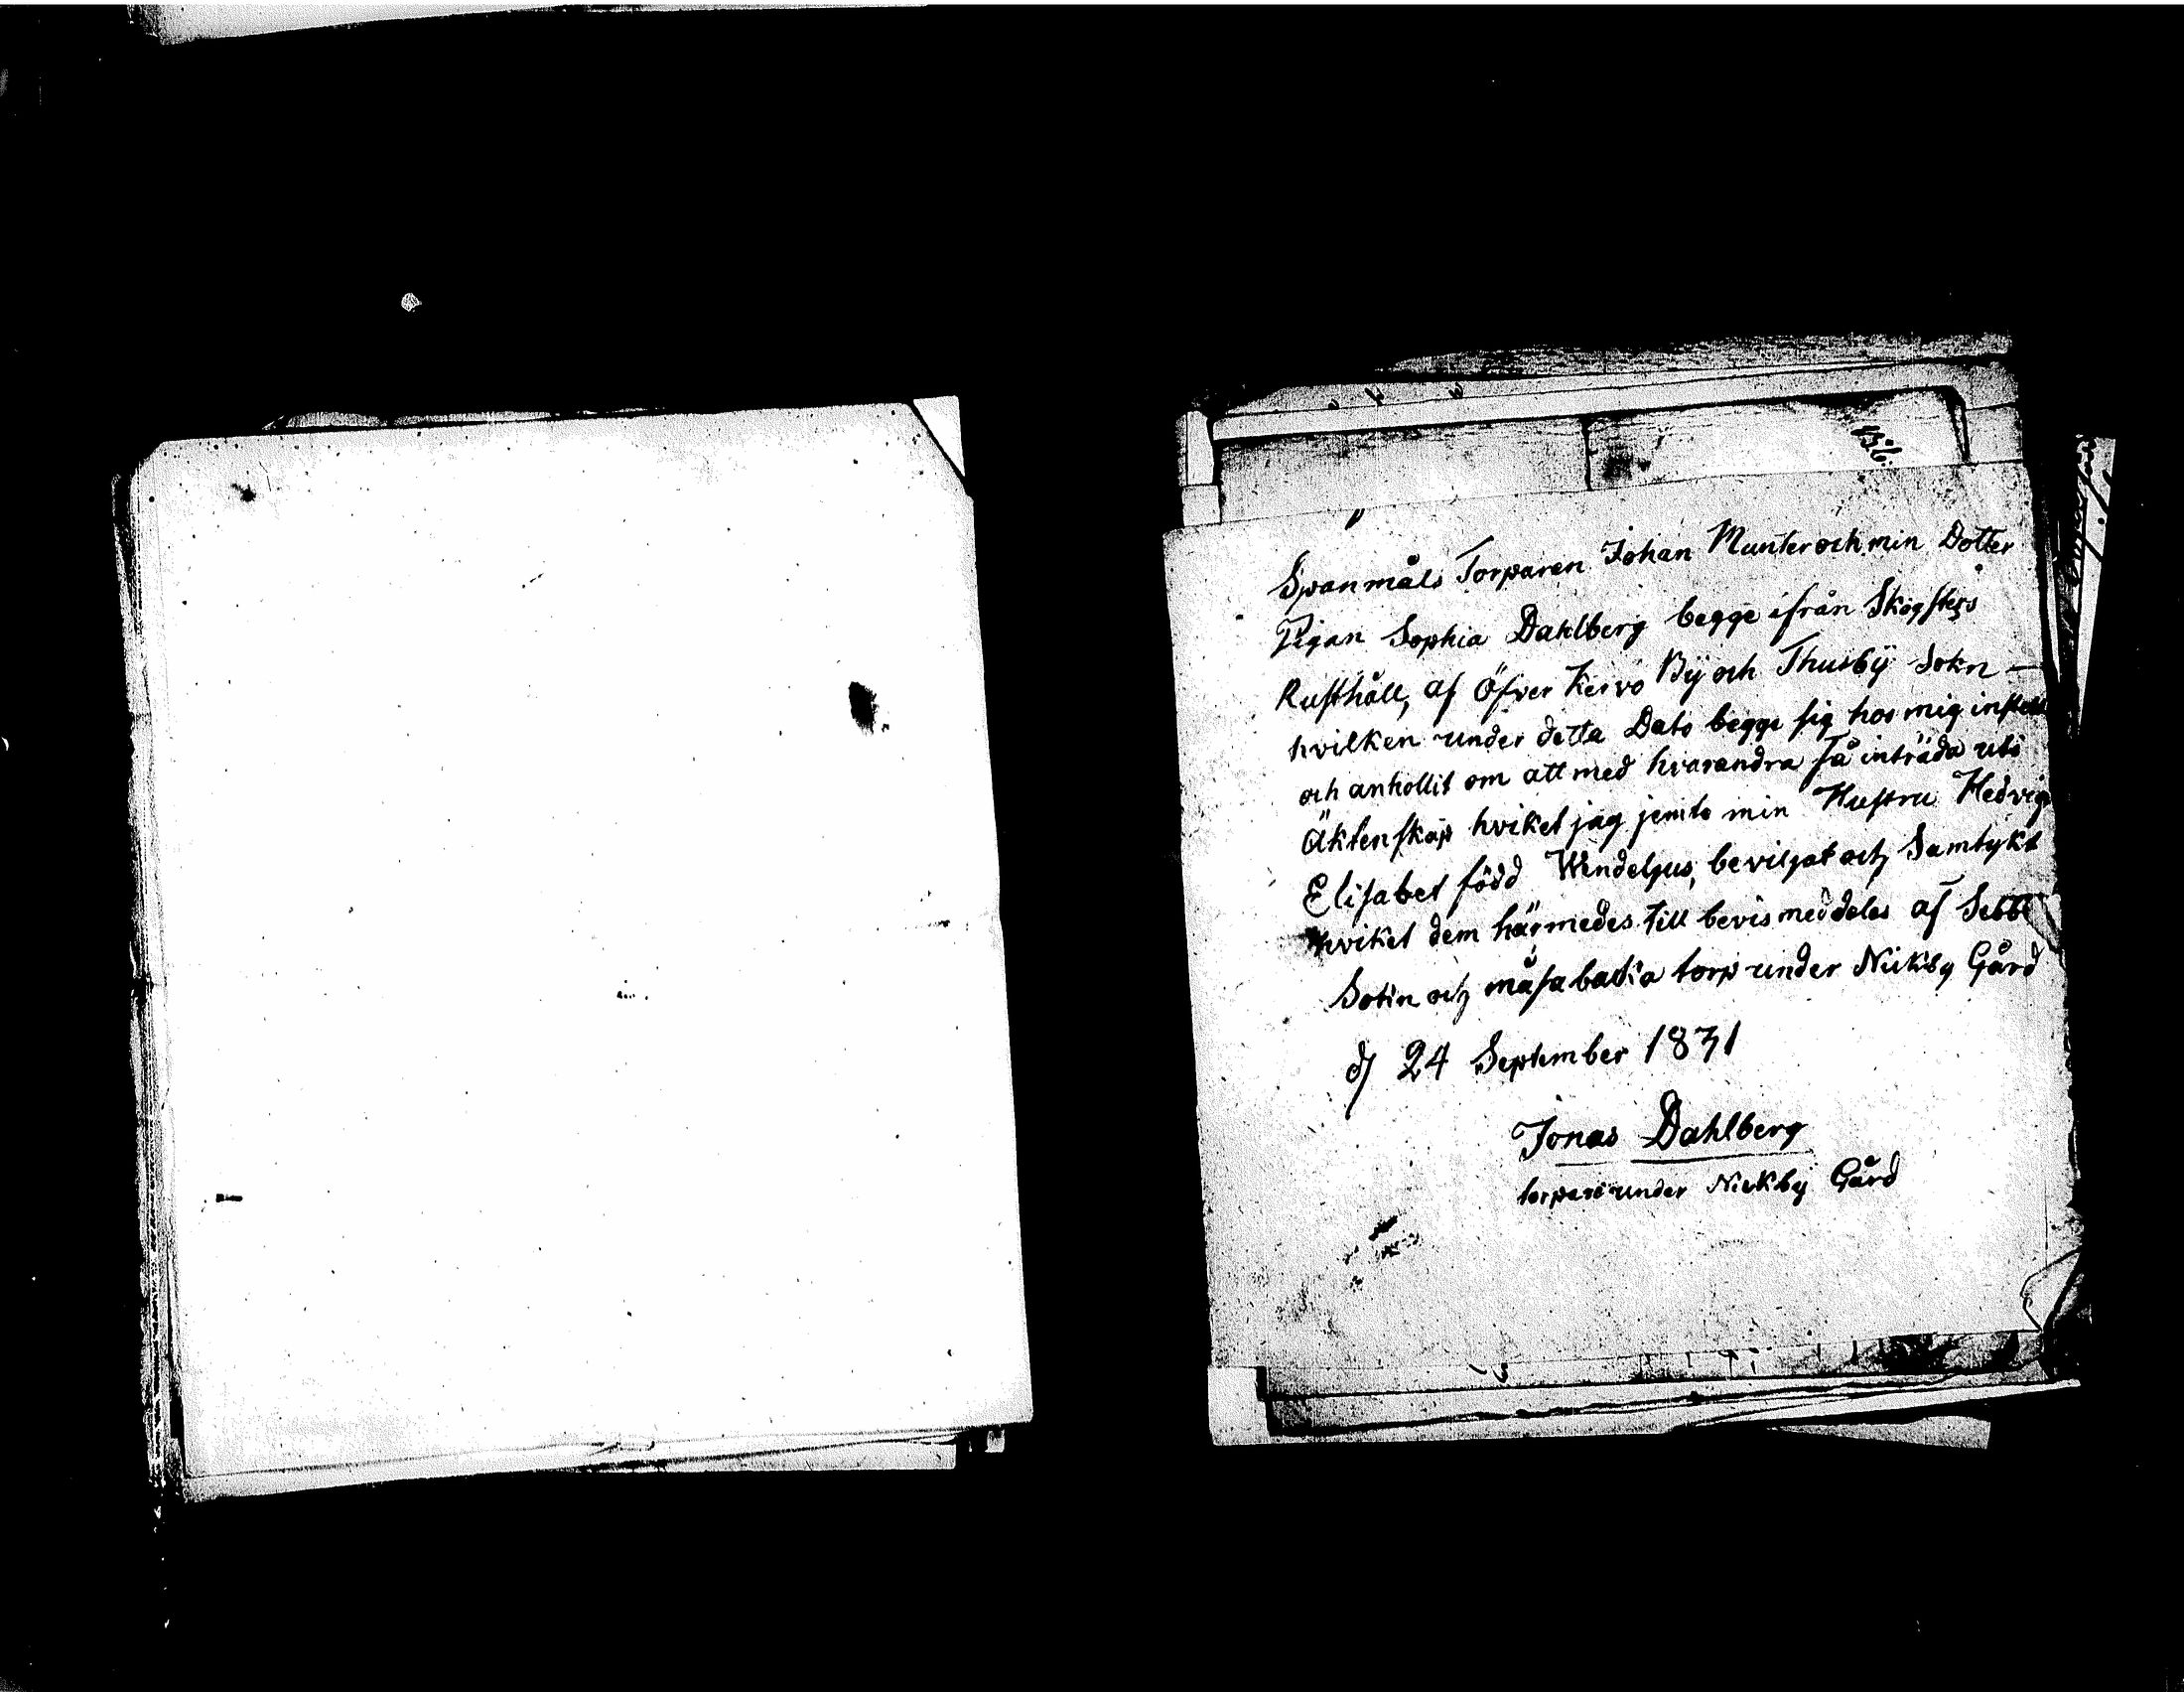 Spanmåls Torparen Johan Munter och min Dotter
Pigan Sophia Dahlberg begge ifrån Skogsters
Rusthåll, af Öfver Kervo Bÿ och Thusbÿ Sokn —
hvilken under detta Dato begge sig hos mig instält
och anhollit om att med hvarandra få inträda uti
Äktenskap hviket jag jemte min Hustru Hedvig
Elisabet född Wendelius, beviljat och Samtykt
hviket dem härmedes till bevis meddeles af Sebbo
Sokn och måsabacka torp under Nickby Gård
d 24 September 1831
Jonas Dahlberg
torpare under Nickbÿ Gård